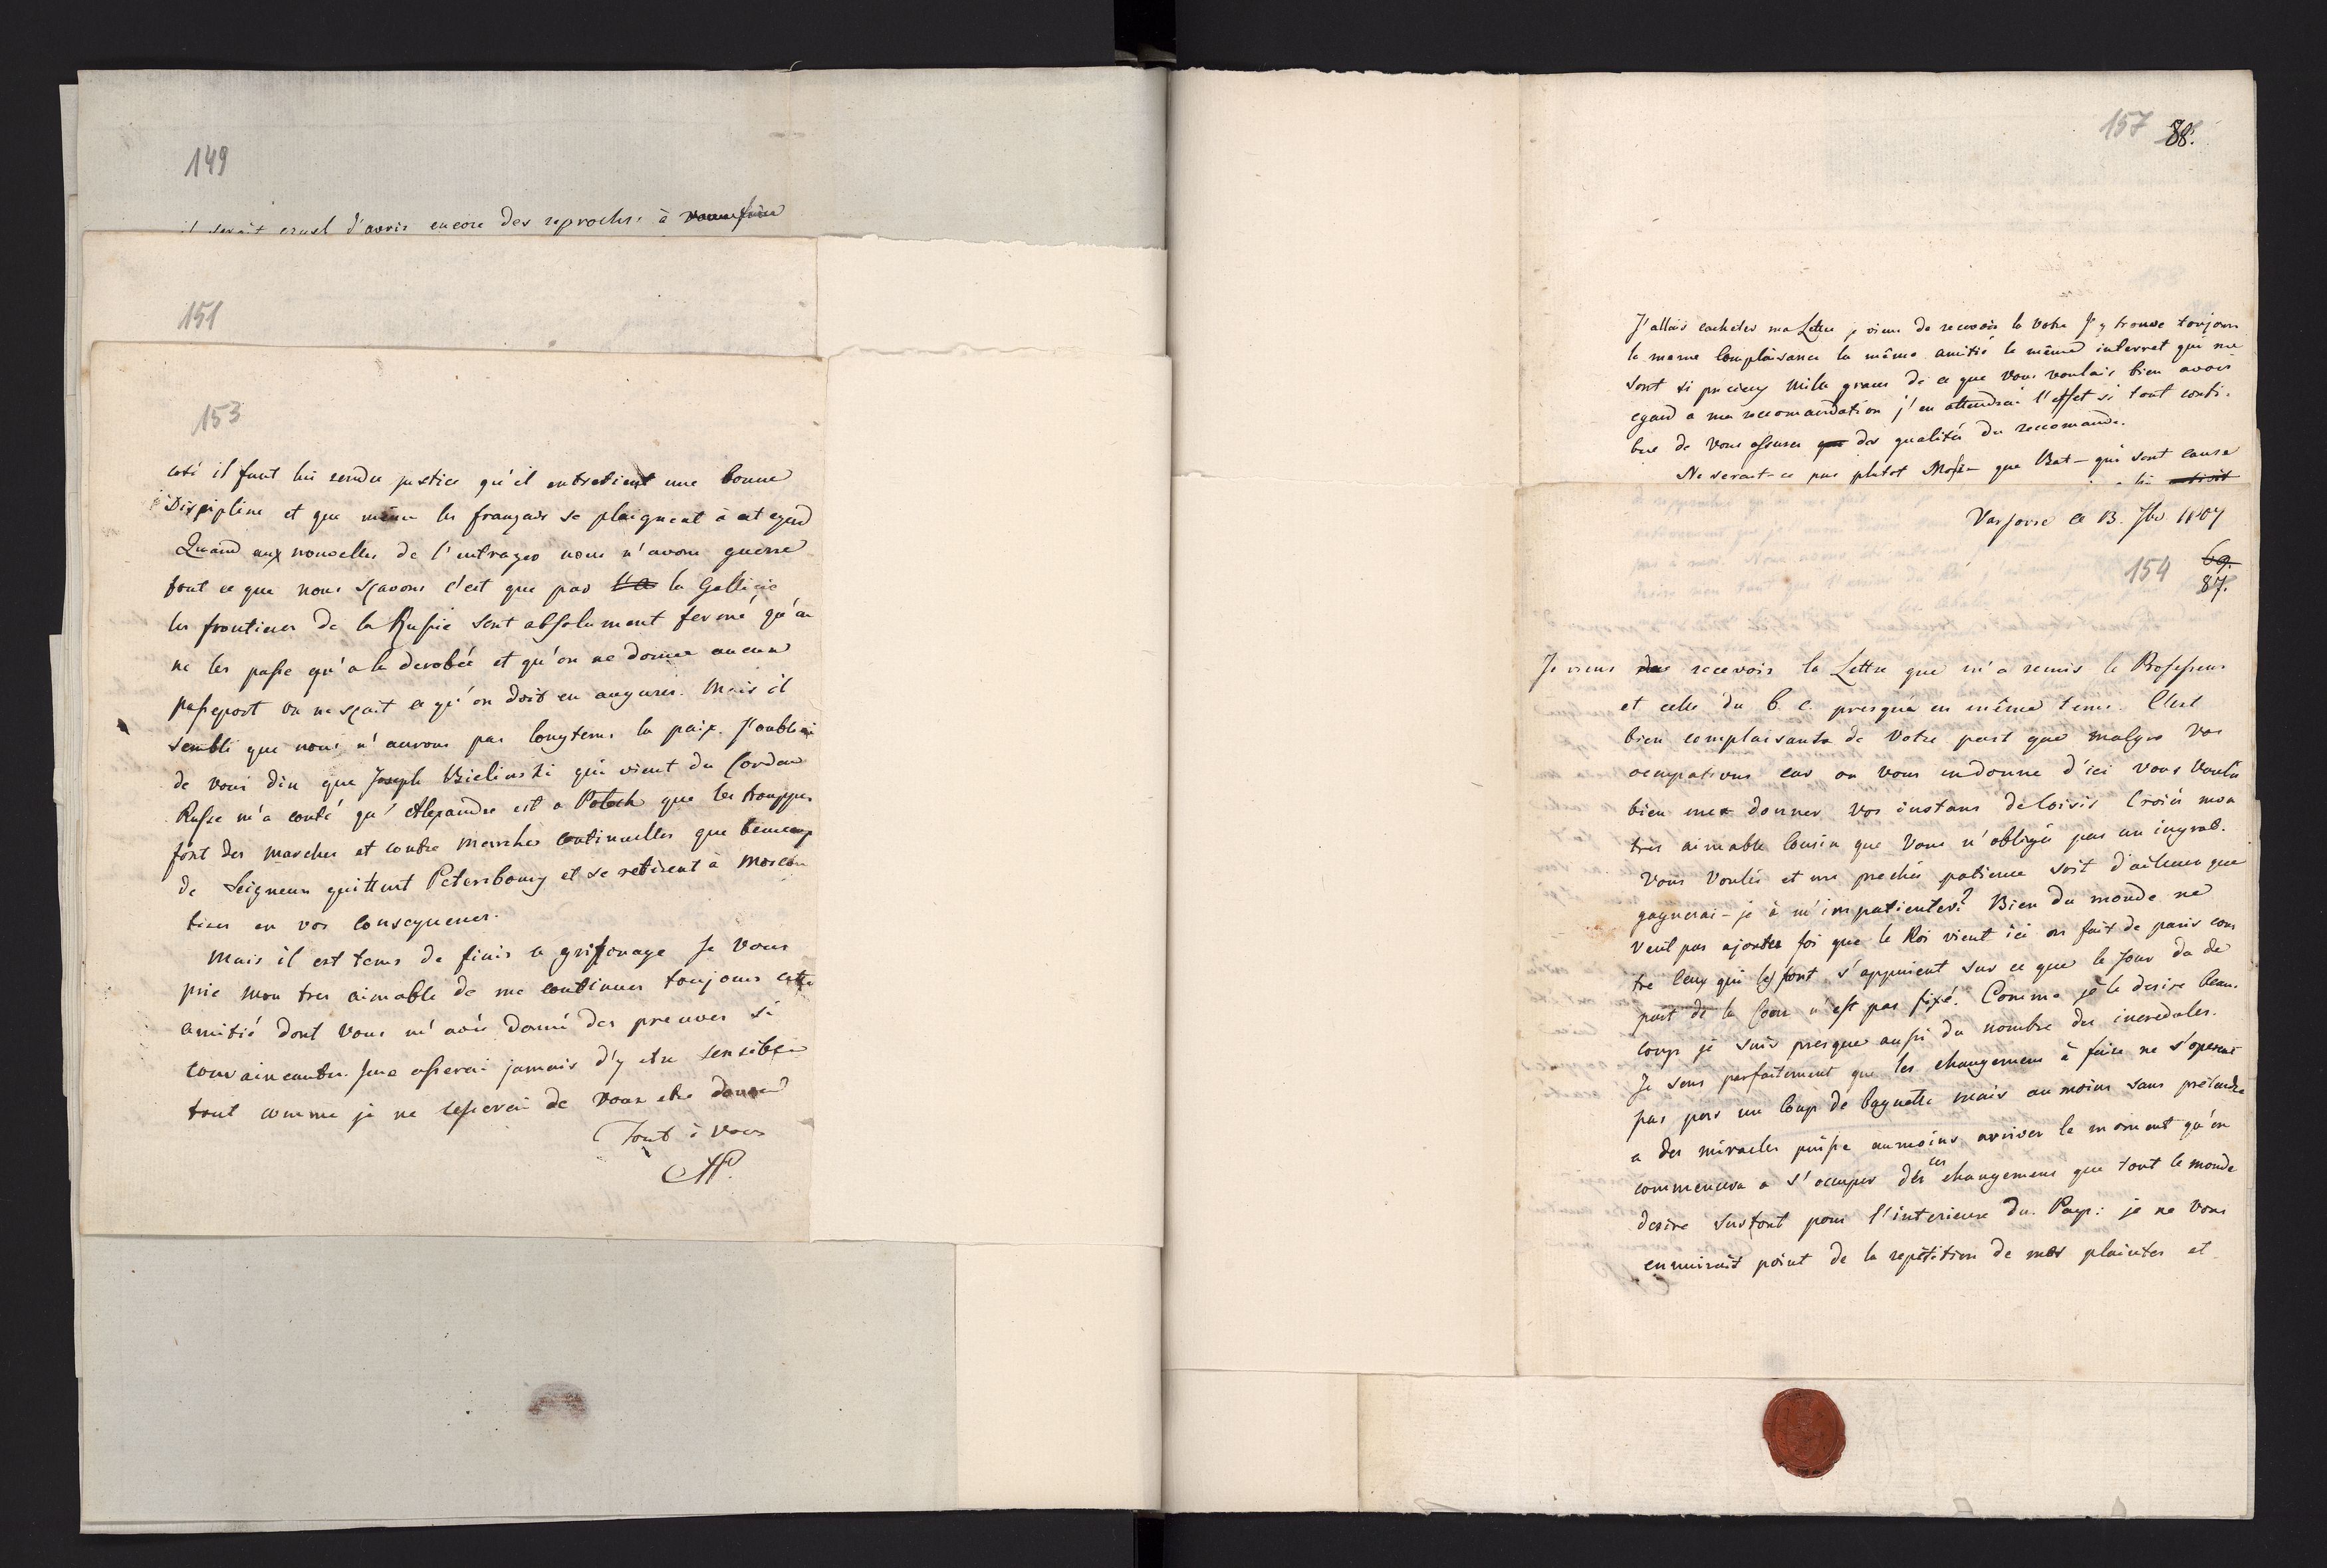 149
il serait cruel d'avoir encore des reproches à
151
153
coté il faut lui rendre justice qu'il entretient une bonne
Dispipline et que même les français se plaignent à cet egard
Quand aux nouvelles de l'entrages nous n'avons guerre
tout ce que nous sçavons c'est que par la Gallicie
les frontieres de la Russie sont absolument fermé qu'on
ne les passe qu'a la derobée et qu'on ne donne aucun
passeport on ne sçait ce qu'on doit en augurer. Mais il
semble que nous n'aurons pas longtems la paix. J'oubliai
de vous dire que Joseph Bielinski qui vient du Cordon
Russe m'a conté qu'Alexandre est a Polock que les trouppes
font des marches et contre marches continuelles que beaucoup
de Seigneurs quittent Petersbourg et se retirent à Moscou
tirer en vos consequences.
Mais il est tems de finir ce grifonage Je vous
prie mon tres aimable de me continuer toujours cette
amitié dont vous m'avés donné des preuves si
convaincantes. Je ne cesserai jamais d'y etre sensible
tout comme je ne cesserai de vous etre
Tout à vous
AP.
157 88.
J'allois cacheter ma Lettre je viens de recevoir la votre J'y trouve toujours
la meme complaisance la même amitié le même interret qui me
sont si precieux Mille graces de ce que vous voulais bien avoir
egard a ma reccomandation j'en attendrai l'effet si tout conti-
bue de vous assurer que des qualités du reccomandé.
Ne serait-ce pas plutot Mosz- que Bat- qui sont cause
Varsovie ce 13. 7bre 1807
154 69.
87.
Je viens de recevoir la Lettre que m'a remis le Professeur
et celle du B. C. presqu'en même tems. C'est
bien complaisants de votre part que malgré vos
occupations car on vous en donne d'ici vous voulés
bien me donner vos instans de loisir Croiés mon
tres aimable Cousin que vous n'obligés pas un ingrat.
Vous voulés et me prechés patience soit d'ailleurs que
gagnerai-je à m'impatienter? Bien du monde ne
veut pas ajouter foi que le Roi vient ici on fait de paris con
tre ceux qui les font s'appuient sur ce que le jour du de
part de la Cour n'est pas fixé. Comme je le desire beau-
coup je suis presque aussi du nombre des incredules.
Je sens parfaitement que les changemens à faire ne s'operent
pas par un coup de baguette mais au moins sans pretendre
a des miracles puisse aumoins arriver le moment qu'on
commencera a s'occuper des ces changemens que tout le monde
desire surtout pour l'interieure du Pays: je ne vous
ennuirait point de la repetition de mes plaintes et